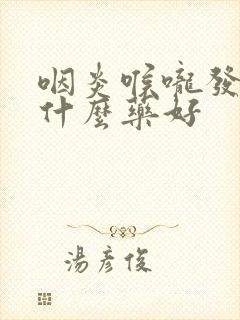 咽炎喉嚨發
什麼藥好
湯彥俊